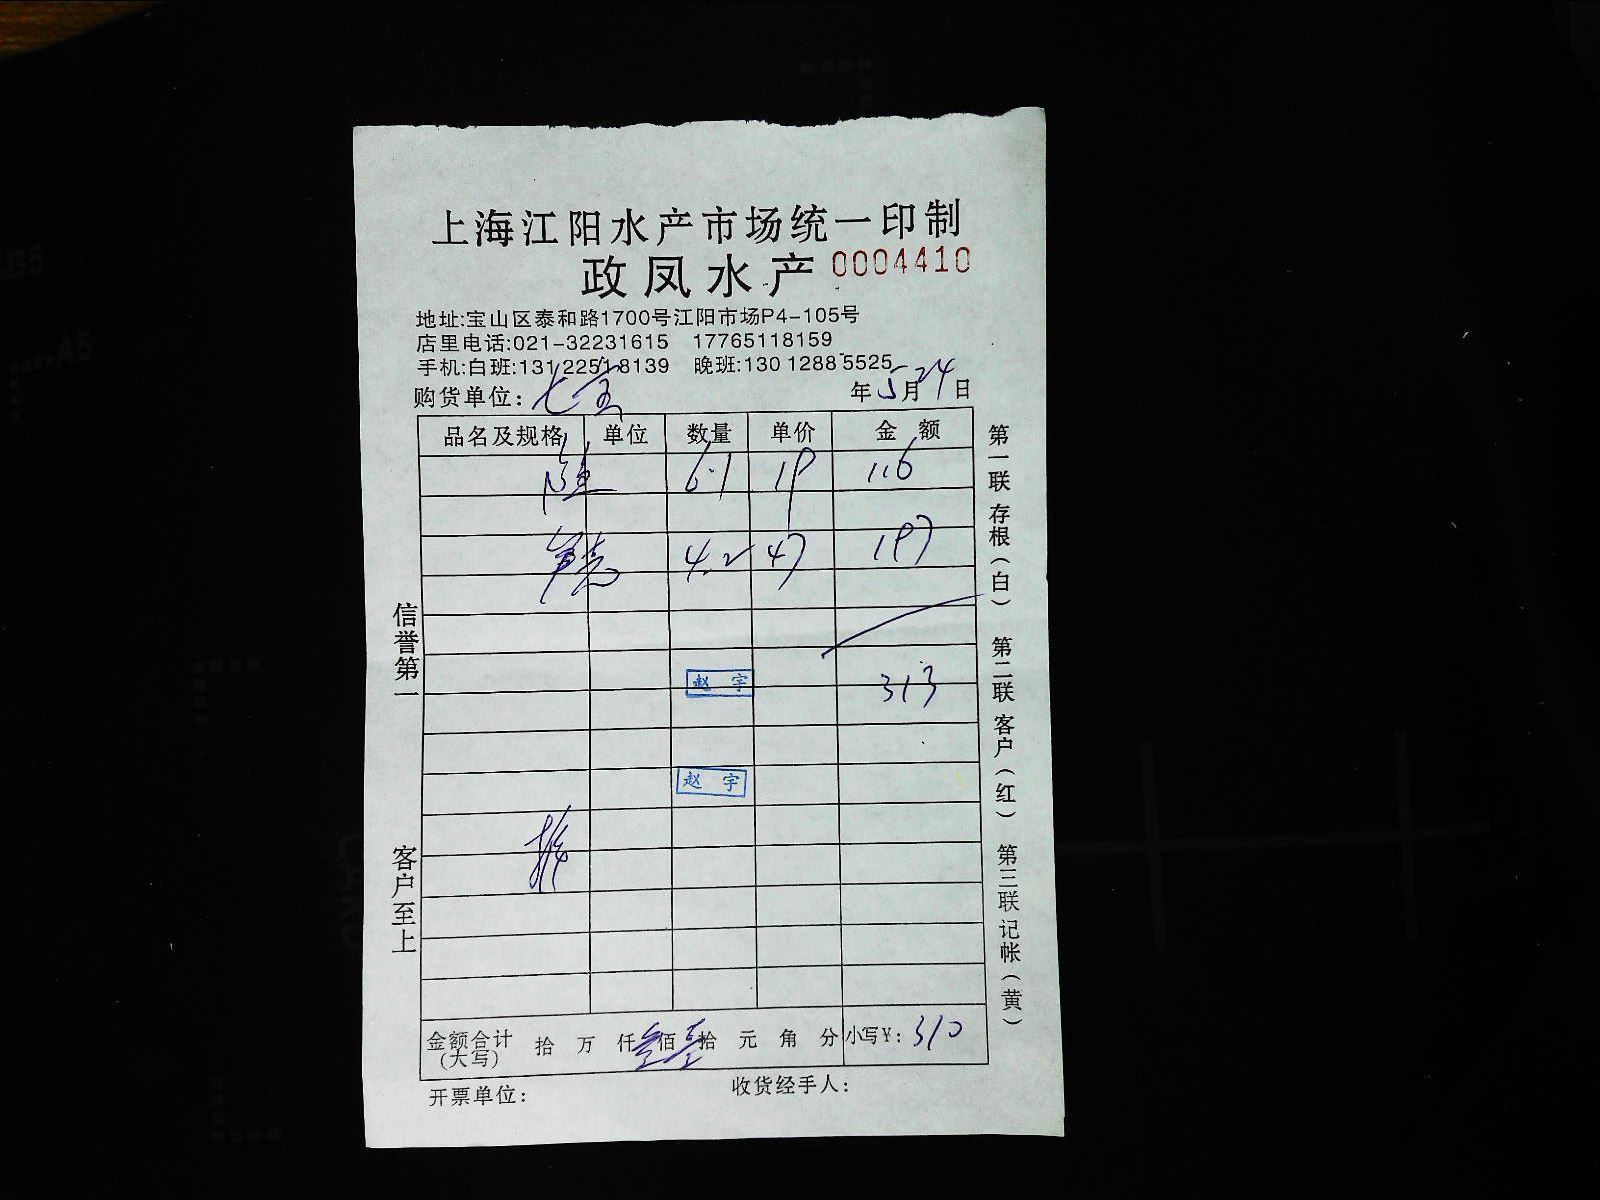 上海江阳水产市场统一印制
政凤水产 0004410
地址:宝山区泰和路1700号江阳市场P4-105号
店里电话:021-32231615 17765118159
手机:白班:13122518139 晚班:13012885525
购货单位: 七宝 年5月24日
品名及规格 单位 数量 单价 金额
6.1 19 116
4.2 47 197
赵宇 313
赵宇
金额合计(大写) 拾 万 仟叁佰壹拾 元 角 分 小写¥: 310
开票单位: 收货经手人:
信誉第一
客户至上
第一联 存根(白) 第二联 客户(红) 第三联 记帐(黄)